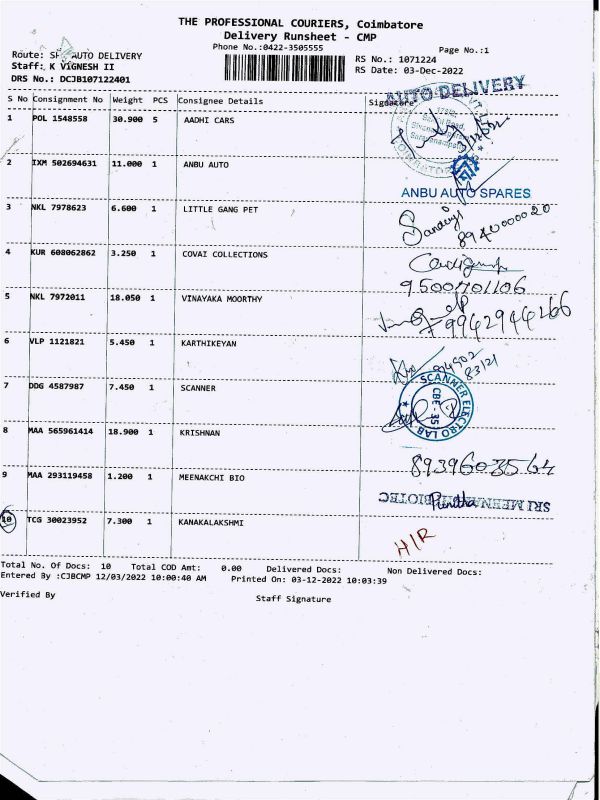 THE PROFESSIONAL COURIERS, Coimbatore
Delivery Runsheet - CMP
Phone No.:0422-3505555
Page No.:1
Route: AUTO DELIVERY
Staff: K VIGNESH II
DRS No.: DCJB107122401
RS No.: 1071224
RS Date: 03-Dec-2022
AUTO DELIVERY
S No Consignment No Weight PCS Consignee Details Signature
1 POL 1548558 30.900 5 AADHI CARS
2 IXM 502694631 11.000 1 ANBU AUTO
ANBU AUTO SPARES
3 NKL 7978623 6.600 1 LITTLE GANG PET
8940000020
4 KUR 608062862 3.250 1 COVAI COLLECTIONS
9500701106
5 NKL 7972011 18.050 1 VINAYAKA MOORTHY
9942944266
6 VLP 1121821 5.450 1 KARTHIKEYAN
7 DDG 4587987 7.450 1 SCANNER
SCANNER ELECTRO LAB
CBE - 35
8 MAA 565961414 18.900 1 KRISHNAN
8939603564
9 MAA 293119458 1.200 1 MEENAKCHI BIO
SRI MEENAKSHI BIOTEC
Punitha
10 TCG 30023952 7.300 1 KANAKALAKSHMI
H/R
Total No. Of Docs: 10 Total COD Amt: 0.00 Delivered Docs: Non Delivered Docs:
Entered By :CJBCMP 12/03/2022 10:00:40 AM Printed On: 03-12-2022 10:03:39
Verified By
Staff Signature